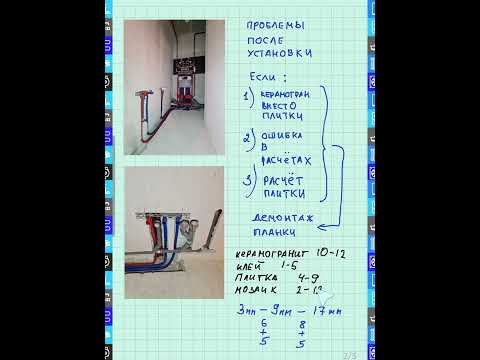 ПРОБЛЕМЫ
ПОСЛЕ
УСТАНОВКИ
Если :
1) КЕРАМОГРАН
ВМЕСТО
ПЛИТКИ
2) ОШИБКА
В
РАСЧЁТАХ
3) РАСЧЁТ
ПЛИТКИ
ДЕМОНТАЖ
ПЛАНКИ
КЕРАМОГРАНИТ 10-12
КЛЕЙ 1-5
ПЛИТКА 4-9
МОЗАИК 2-12
3мм - 9мм - 17мм
6 8
+ +
5 5
2/3